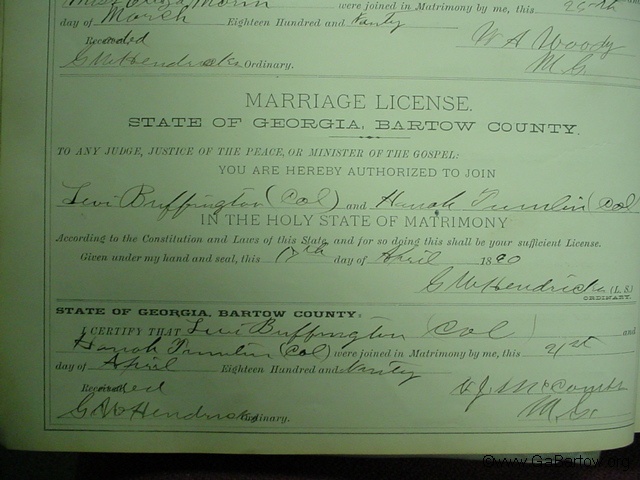 were joined in Matrimony by me, this 29th
day of March Eighteen Hundred and Ninty
Recorded W A Woody
G W Hendricks Ordinary. M.G.
MARRIAGE LICENSE.
STATE OF GEORGIA, BARTOW COUNTY.
TO ANY JUDGE, JUSTICE OF THE PEACE, OR MINISTER OF THE GOSPEL:
YOU ARE HEREBY AUTHORIZED TO JOIN
Levi Buffington (Col) and Hanah Tumlin (Col)
IN THE HOLY STATE OF MATRIMONY
According to the Constitution and Laws of this State, and for so doing this shall be your sufficient License.
Given under my hand and seal, this 17th day of April 1890
G W Hendricks (L. S.)
ORDINARY.
STATE OF GEORGIA, BARTOW COUNTY:
I CERTIFY THAT Levi Buffington (Col) and
Hanah Tumlin (Col) were joined in Matrimony by me, this 21st
day of April Eighteen Hundred and Ninty
Recorded
G W Hendricks Ordinary. M.G.